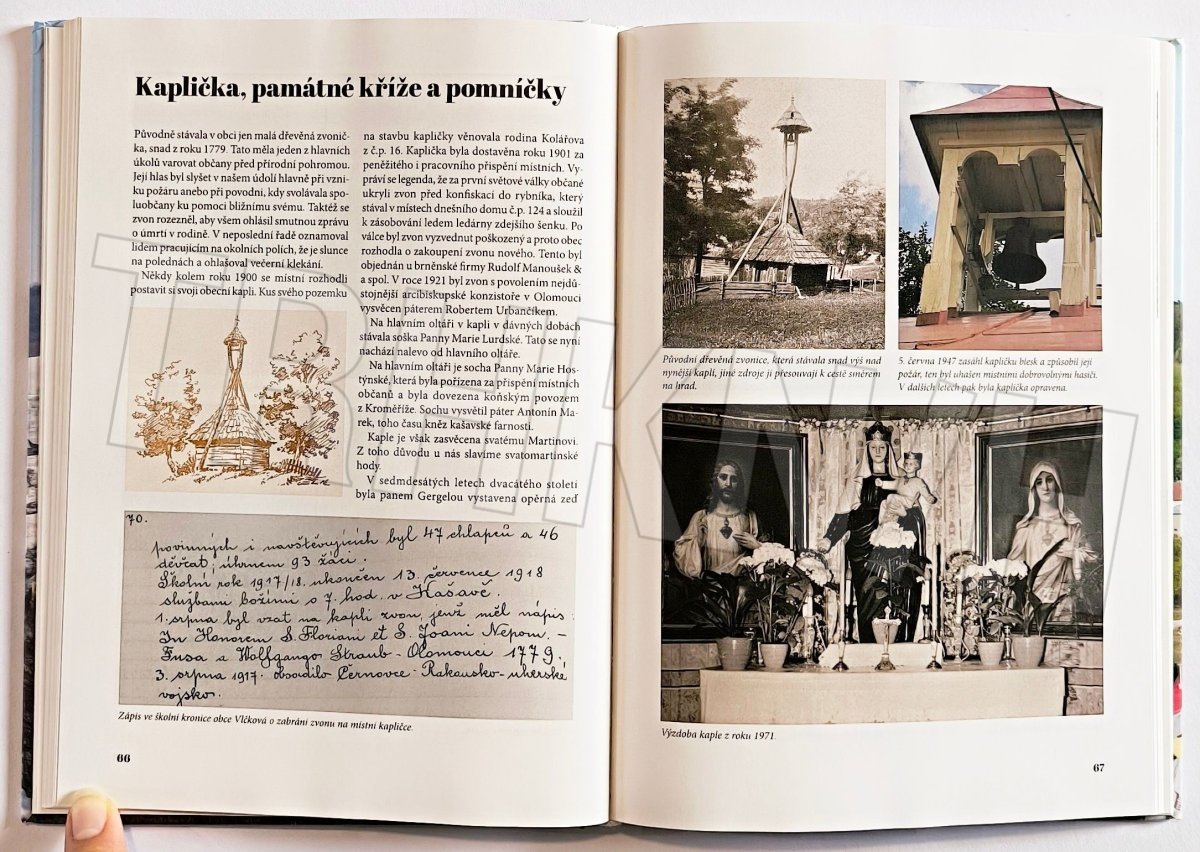 Kaplička, památné kříže a pomníčky
Původně stávala v obci jen malá dřevěná zvonič-
ka, snad z roku 1779. Tato měla jeden z hlavních
úkolů varovat občany před přírodní pohromou.
Její hlas byl slyšet v našem údolí hlavně při vzni-
ku požáru anebo při povodni, kdy svolávala spo-
luobčany ku pomoci bližnímu svému. Taktéž se
zvon rozezněl, aby všem ohlásil smutnou zprávu
o úmrtí v rodině. V neposlední řadě oznamoval
lidem pracujícím na okolních polích, že je slunce
na polednách a ohlašoval večerní klekání.
Někdy kolem roku 1900 se místní rozhodli
postavit si svoji obecní kapli. Kus svého pozemku
na stavbu kapličky věnovala rodina Kolářova
z č.p. 16. Kaplička byla dostavěna roku 1901 za
peněžitého i pracovního přispění místních. Vy-
práví se legenda, že za první světové války občané
ukryli zvon před konfiskací do rybníka, který
stával v místech dnešního domu č.p. 124 a sloužil
k zásobování ledem ledárny zdejšího šenku. Po
válce byl zvon vyzvednut poškozený a proto obec
rozhodla o zakoupení zvonu nového. Tento byl
objednán u brněnské firmy Rudolf Manoušek &
a spol. V roce 1921 byl zvon s povolením nejdů-
stojnější arcibiskupské konzistoře v Olomouci
vysvěcen páterem Robertem Urbančíkem.
Na hlavním oltáři v kapli v dávných dobách
stávala soška Panny Marie Lurdské. Tato se nyní
nachází nalevo od hlavního oltáře.
Na hlavním oltáři je socha Panny Marie Hos-
týnské, která byla pořízena za přispění místních
občanů a byla dovezena koňským povozem
z Kroměříže. Sochu vysvětil páter Antonín Ma-
rek, toho času kněz kašavské farnosti.
Kaple je však zasvěcena svatému Martinovi.
Z toho důvodu u nás slavíme svatomartinské
hody.
V sedmdesátých letech dvacátého století
byla panem Gergelou vystavena opěrná zeď
70.
povinných i navštěvujících byl 47 chlapců a 46
děvčat, úhrnem 93 žáci.
Školní rok 1917/18. ukončen 13. července 1918
službami božími o 7. hod. v Kašavě.
1. srpna byl vzat na kapli zvon, jenž měl nápis:
In Honorem S. Floriani et S. Joani Nepom. -
Fusa a Wolfgango Straub - Olomouci 1779.
3. srpna 1917. obsadilo Černovce Rakousko-uherské
vojsko.
Zápis ve školní kronice obce Vlčková o zabrání zvonu na místní kapličce.
66
Původní dřevěná zvonice, která stávala snad výš nad
nynější kaplí, jiné zdroje ji přesouvají k cestě směrem
na hrad.
5. června 1947 zasáhl kapličku blesk a způsobil její
požár, ten byl uhašen místními dobrovolnými hasiči.
V dalších letech pak byla kaplička opravena.
Výzdoba kaple z roku 1971.
67